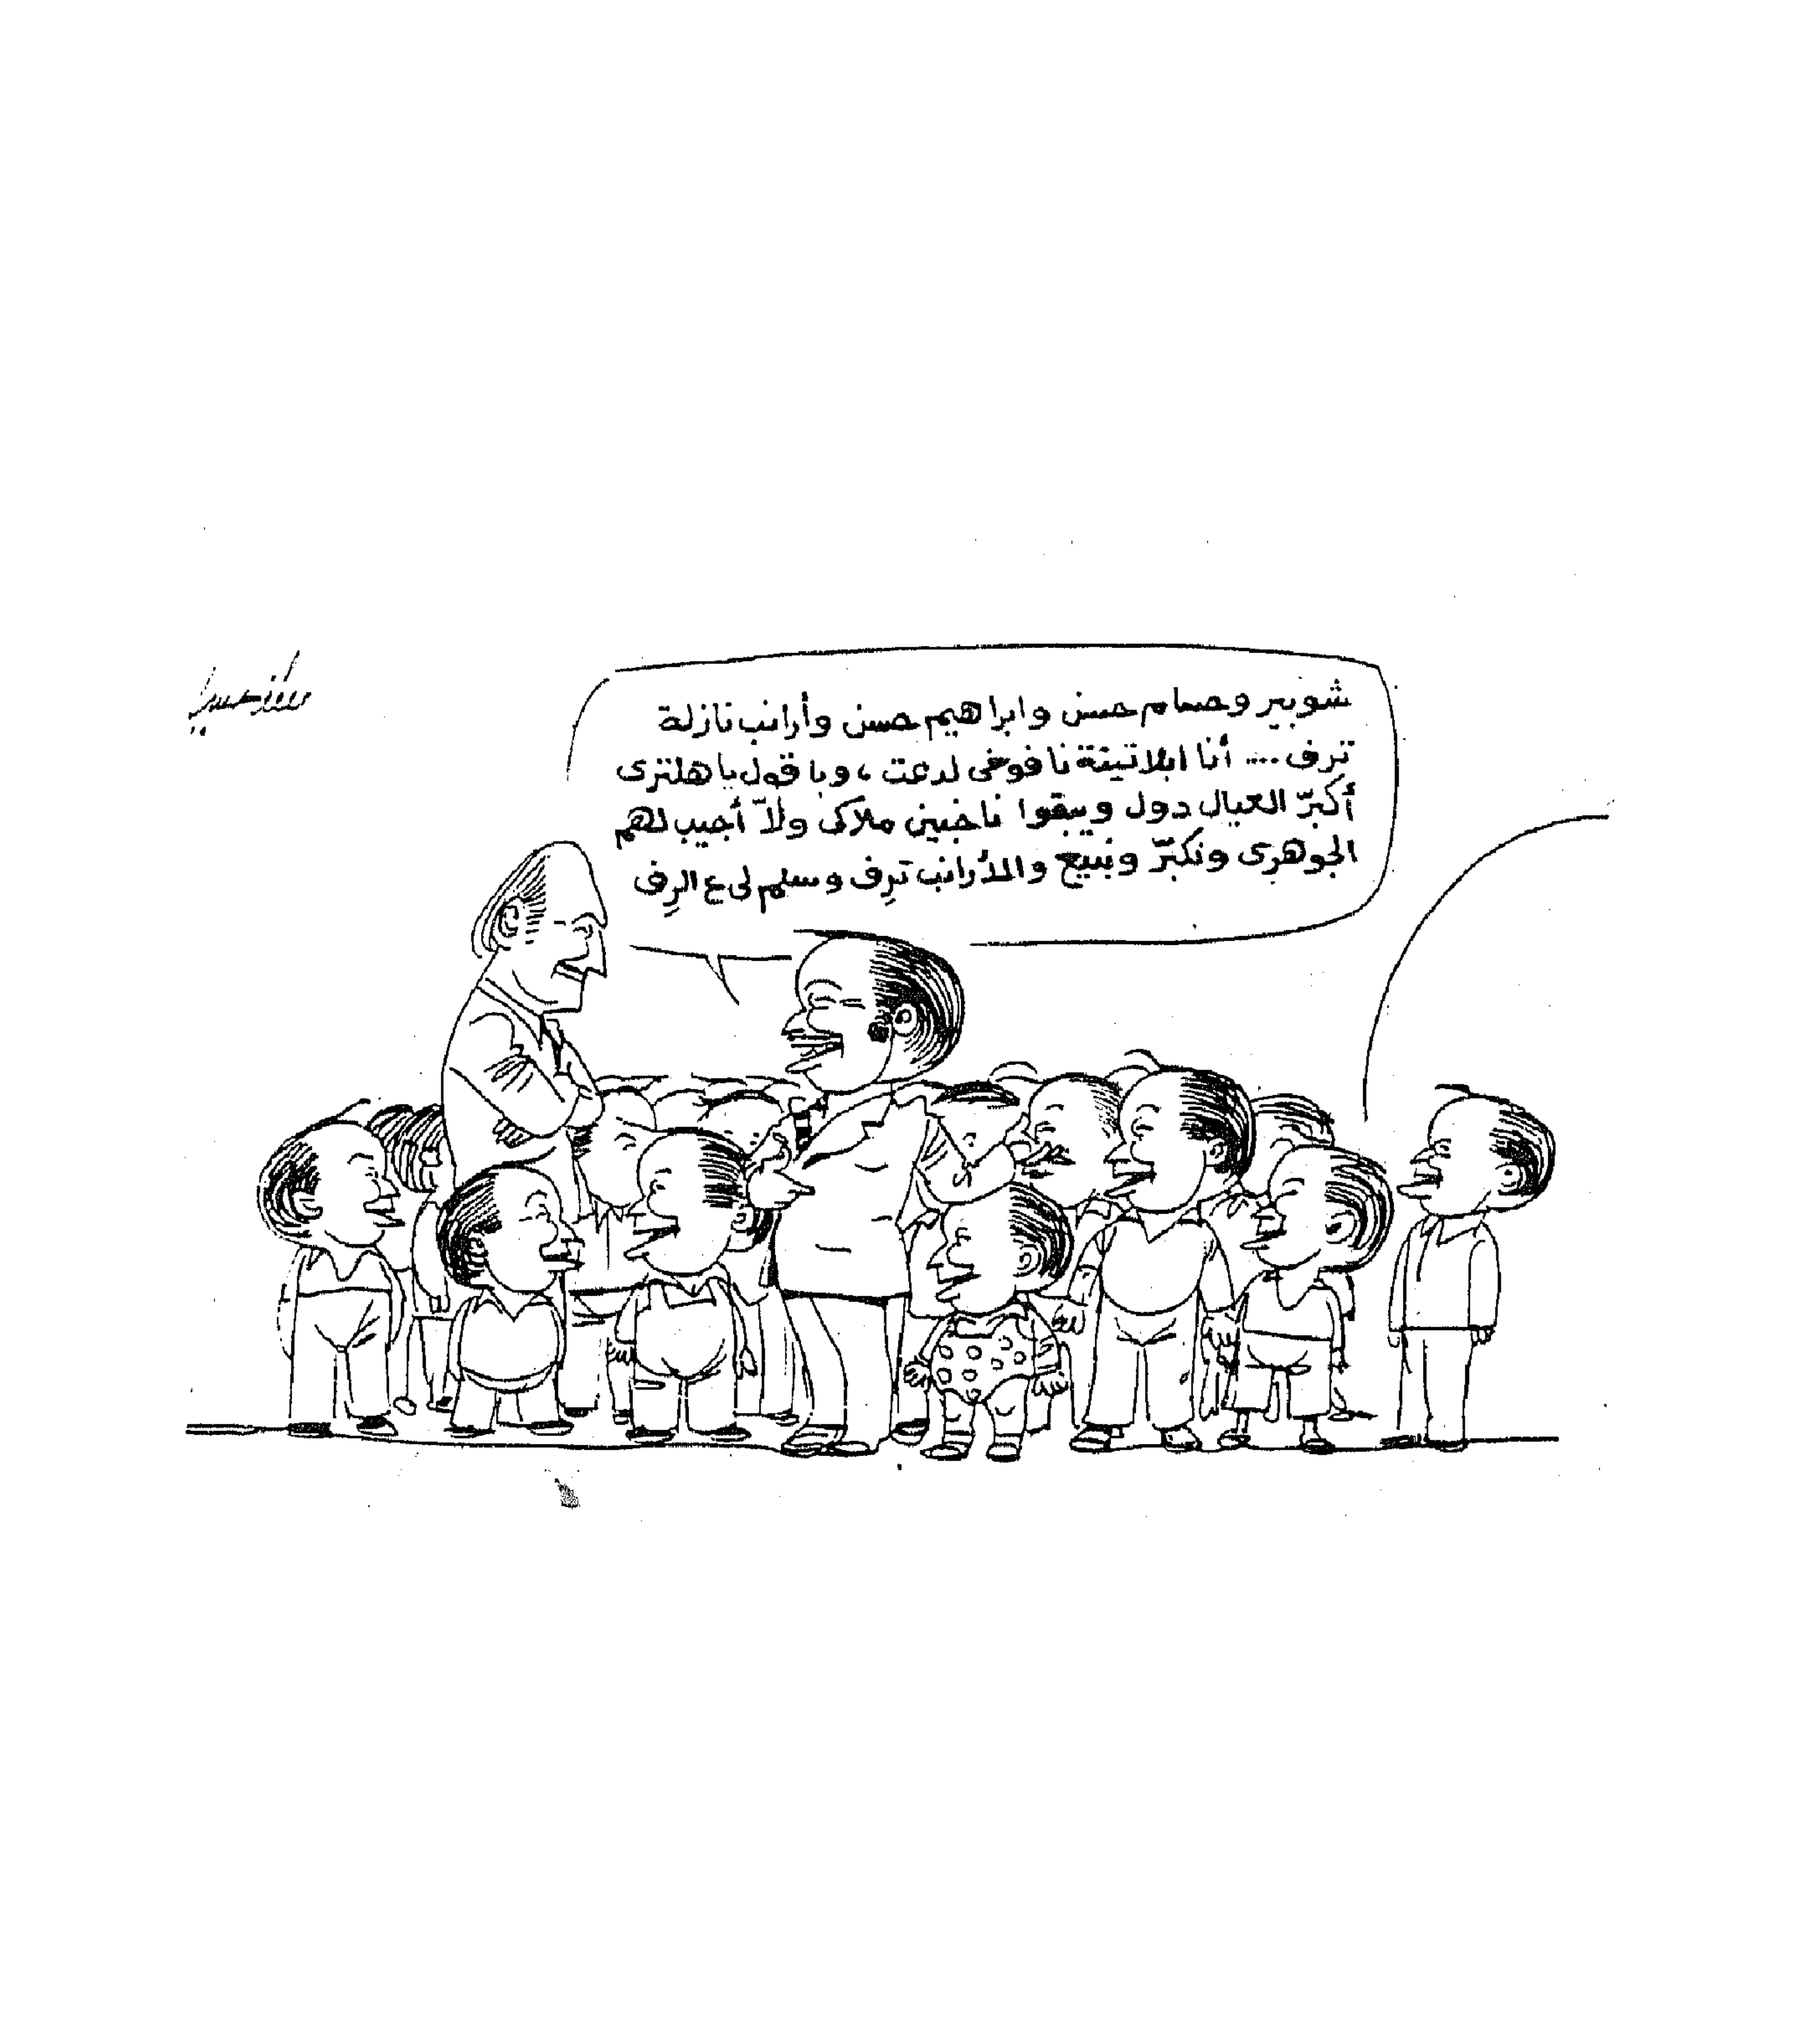 شوبير وحسام حسن وابراهيم حسن وأرانب نازلة
ترف .... أنا ابلاتينة نافوخى لدعت ، وباقول ياهلترى
أكبرّ العيال دول ويبقوا ناخبين ملاكى ولاّ أجيب لهم
الجوهرى ونكبرّ ونبيع والأرانب ترِف وسلم لى ع الرِف